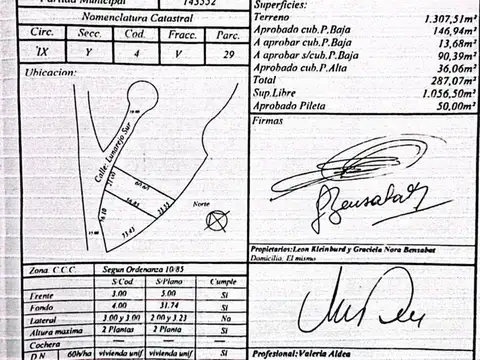 Partida Municipal 143552
Nomenclatura Catastral
Circ. Secc. Cod. Fracc. Parc.
IX Y 4 V 29
Ubicacion:
Calle: Lunarejo Sur
Norte
Zona C.C.C. Segun Ordenanza 10/85
S/Cod S/Plano Cumple
Frente 3.00 5.00 SI
Fondo 4.00 31.74 SI
Lateral 3.00 y 3.00 2.00 y 3.23 No
Altura maxima 2 Plantas 2 Planta SI
Cochera — — —
D.N. 60h/ha vivienda unif vivienda unif SI
Superficies:
Terreno 1.307,51m²
Aprobado cub.P.Baja 146,94m²
A aprobar cub.P.Baja 13,68m²
A aprobar s/cub P.Baja 90,39m²
Aprobado cub.P.Alta 36,06m²
Total 287,07m²
Sup.Libre 1.056,50m²
Aprobado Pileta 50,00m²
Firmas
Bensabat
Propietarios: Leon Kleinburd y Graciela Nora Bensabat
Domicilio. El mismo
Profesional: Valeria Aldea